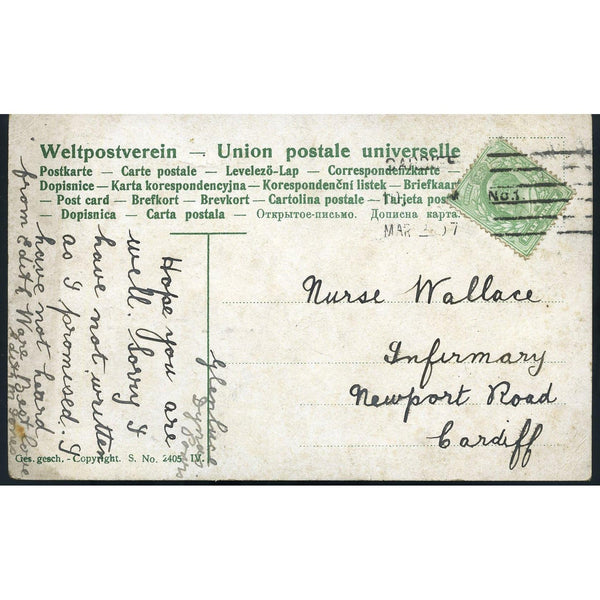 Weltpostverein — Union postale universelle
Postkarte — Carte postale — Levelező-Lap — Correspondenzkarte
Dopisnice - Karta korespondencyjna - Korespondenční listek - Briefkaar
- Post card - Brefkort - Brevkort - Cartolina postale - Tarjeta pos
- Dopisnica - Carta postala - Открытое-письмо. Дописна карта.
CARDIFF
MAR 07
No 3.
Nurse Wallace
Infirmary
Newport Road
Cardiff
Hope you are
well. Sorry I
have not written
as I promised. I
have not heard
from Edith
Best love
Ges. gesch. - Copyright. S. No. 2405 IV.